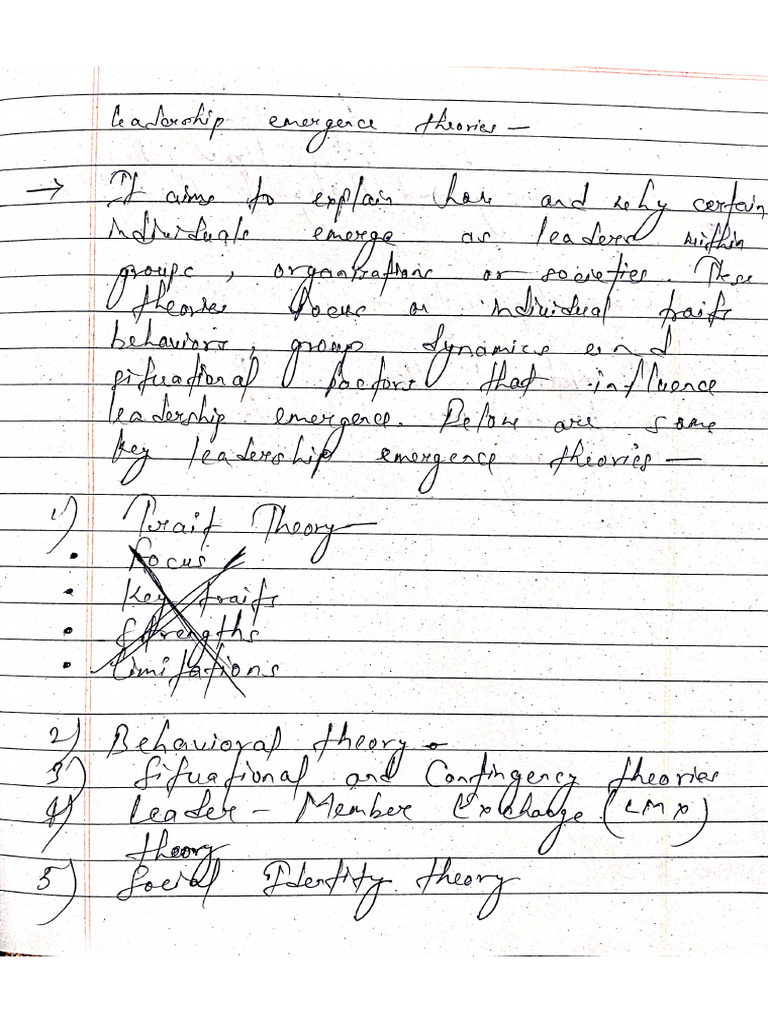 Leadership emergence theories -
→ It aims to explain how and why certain
individuals emerge as leaders within
groups, organizations or societies. These
theories focus on individual traits
behaviors, group dynamics and
situational factors that influence
leadership emergence. Below are some
key leadership emergence theories -
1) Trait Theory -
• Focus
• Key traits
• Strengths
• Limitations
2) Behavioral theory -
3) Situational and Contingency theories
4) Leader - Member Exchange (LMX)
theory
5) Social Identity theory